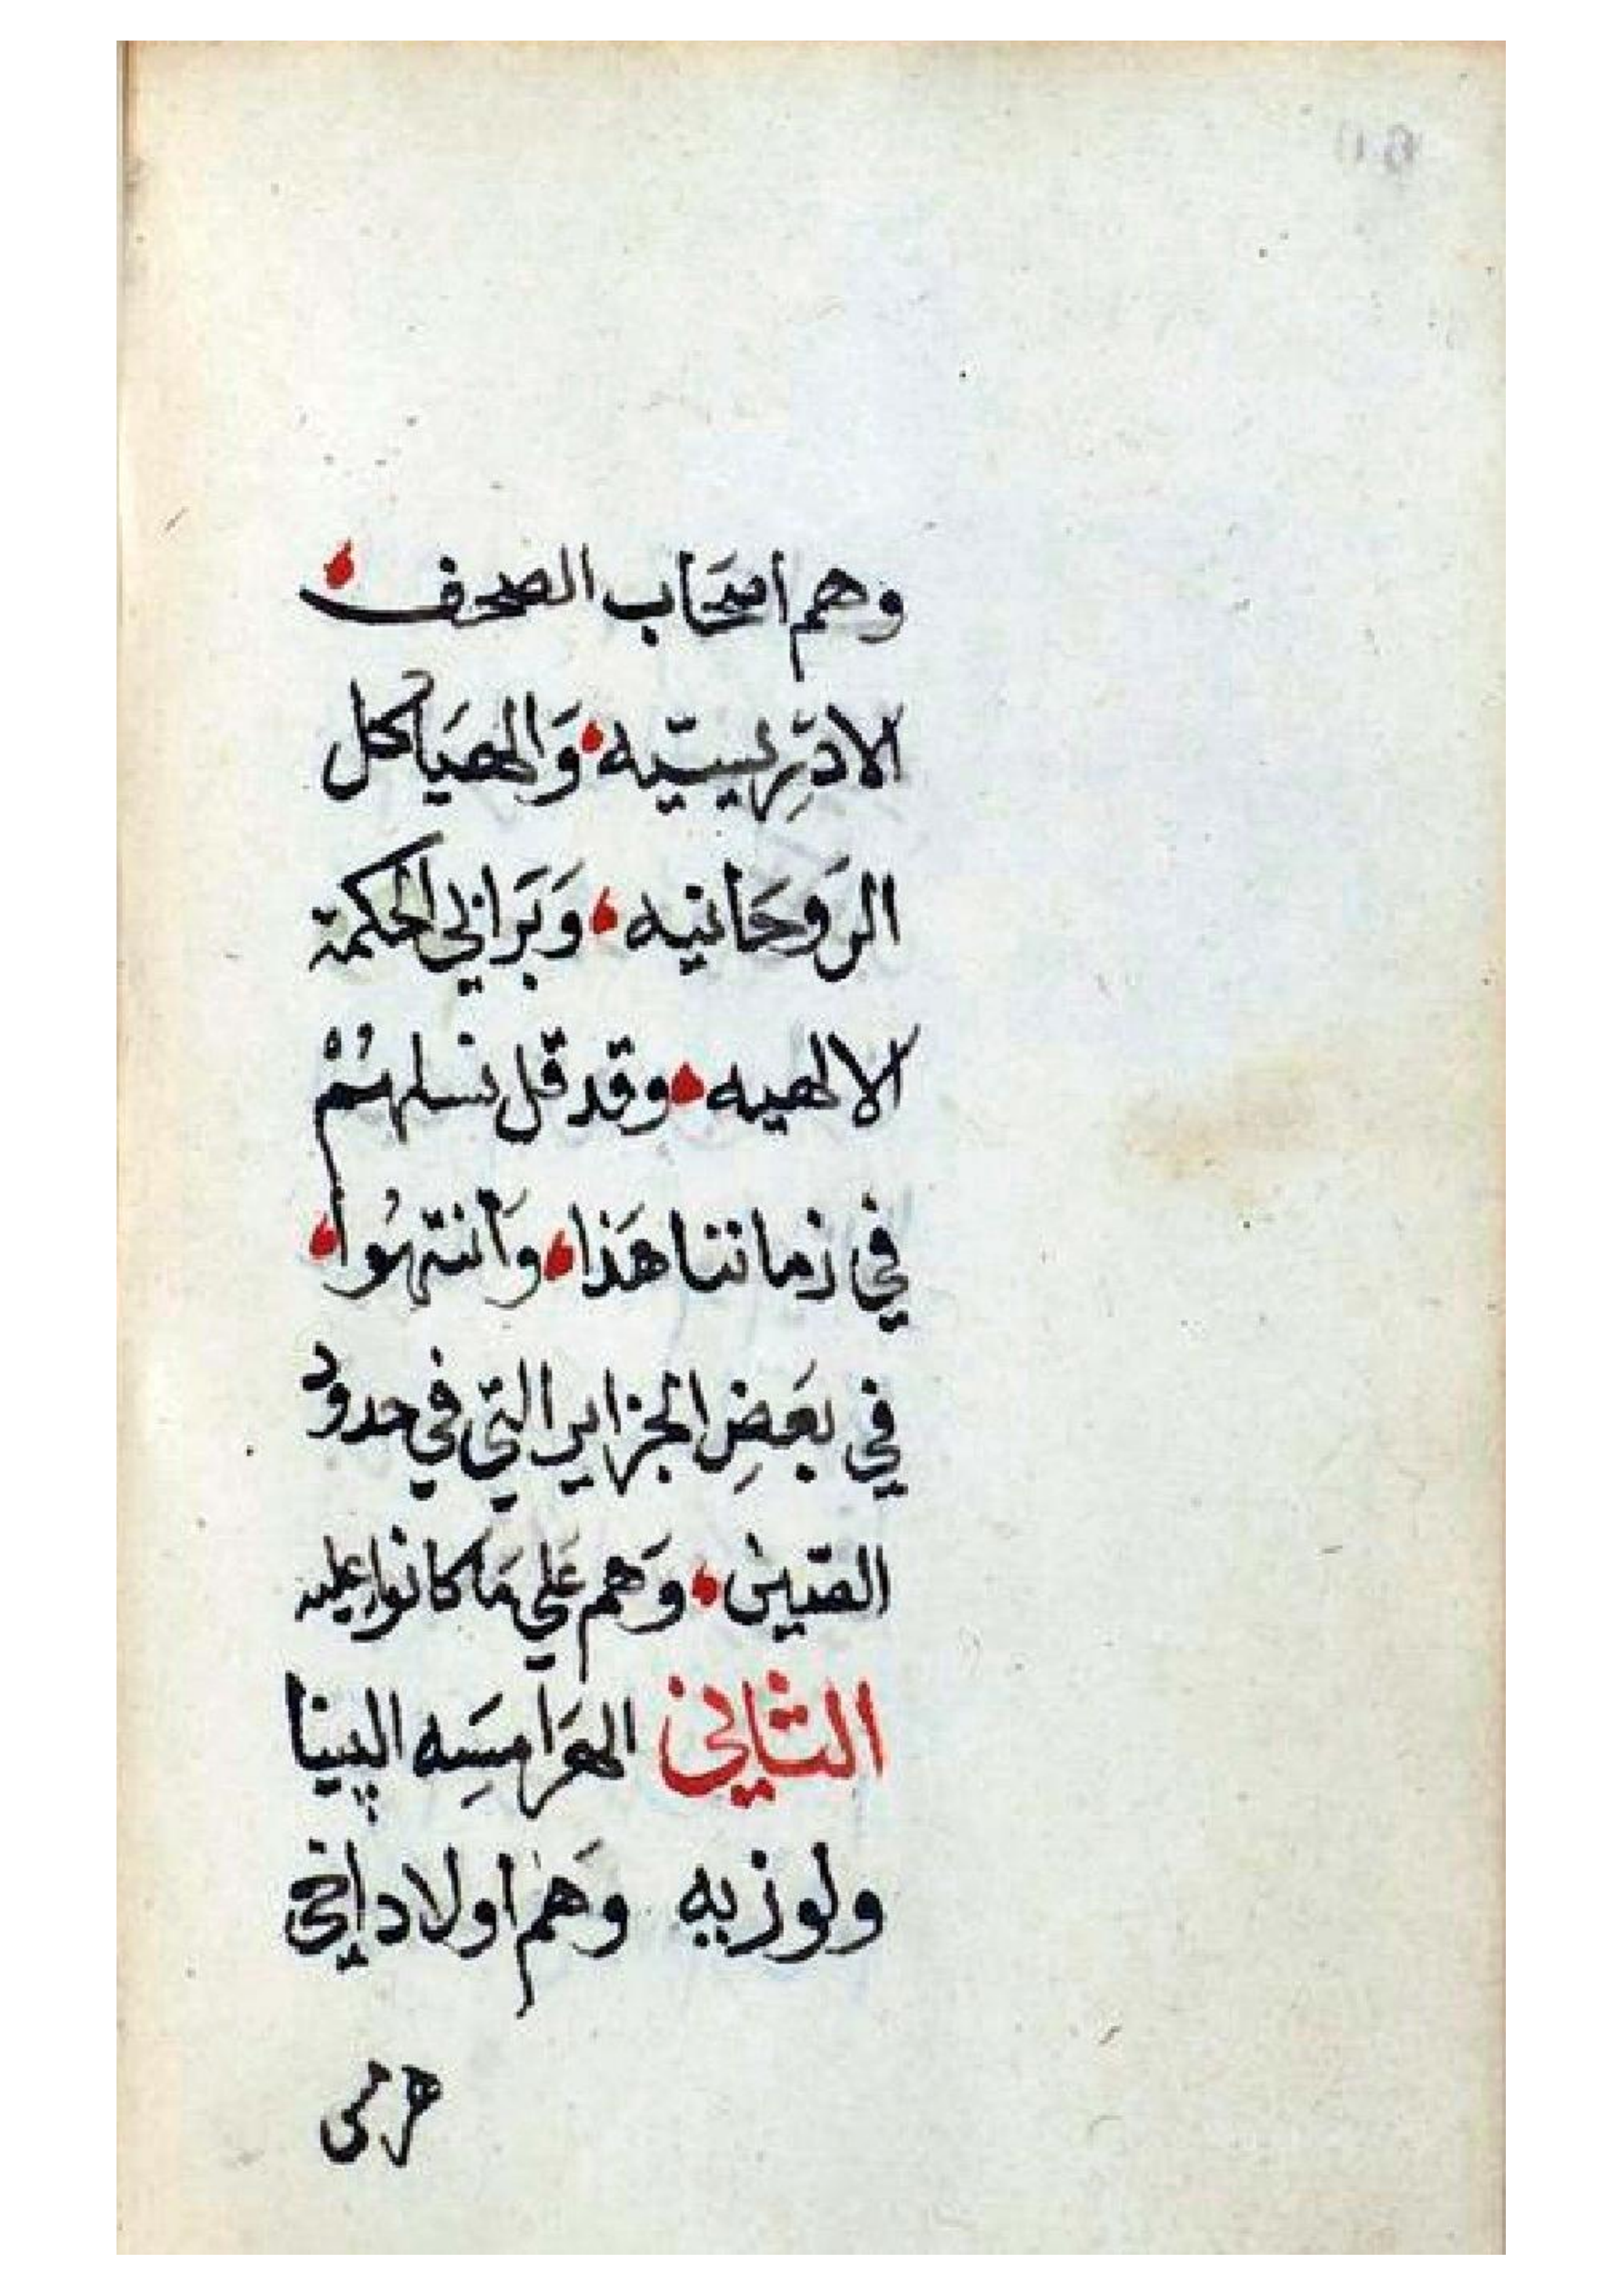 وهم اصحَاب الصحف
الادّرِيسيّه وَالهيَاكل
الرَوحَانيه وَبَرَابي الحكمة
الالهيه وقد قل نسلهُمْ
في زماننا هَذا وَانتهُوا
في بعَضِ الجزاير التي في حدود
الصّين وَهم عَلي مَا كانوا عليه
الثاني الهرَامسَِه
ولوزيه وَهم اولاد اخي